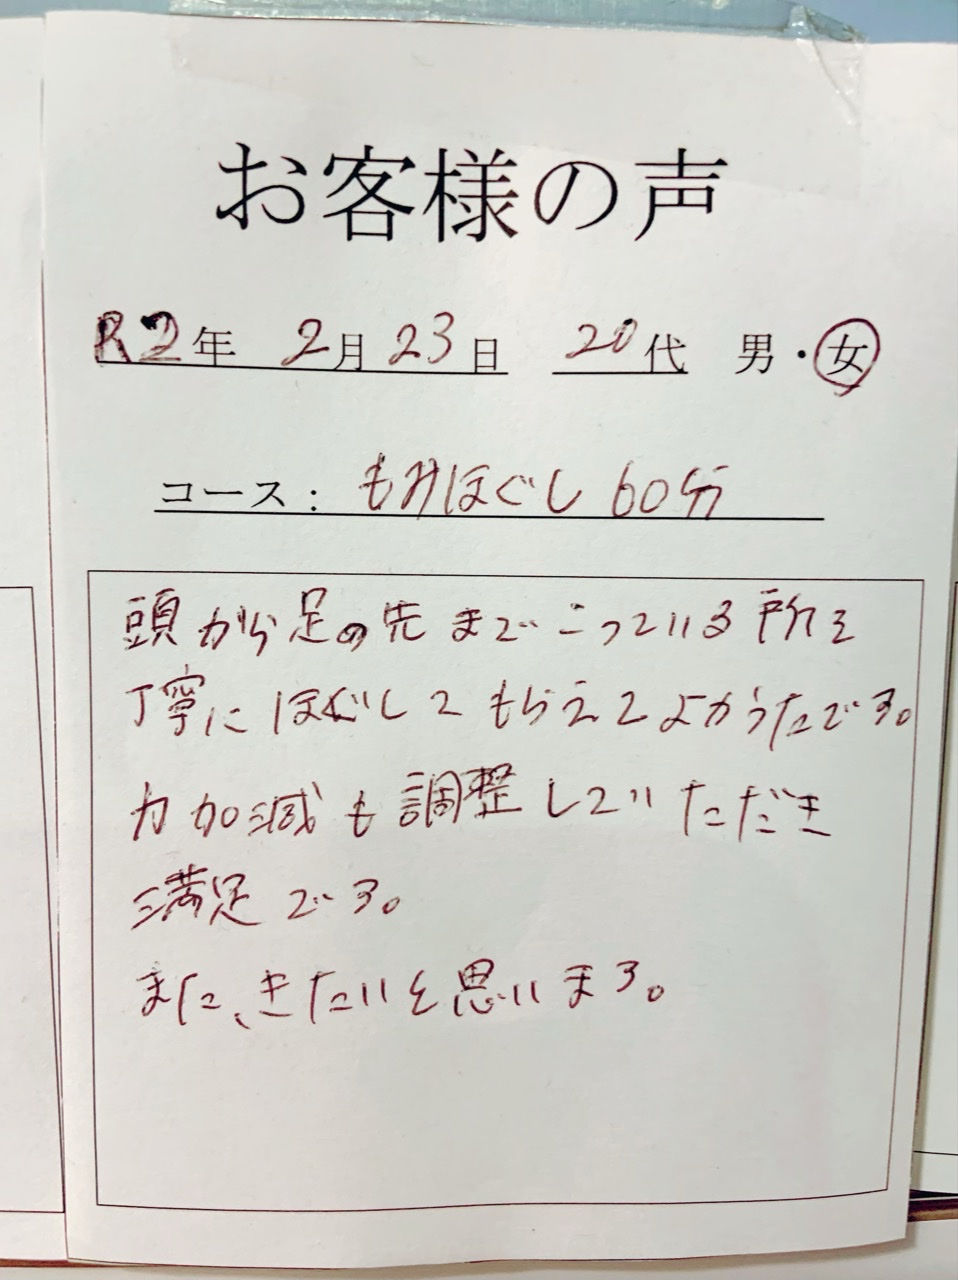 お客様の声
R2年 2月23日 20代 男・女
コース： もみほぐし 60分
頭から足の先までこっている所を
丁寧にほぐしてもらえてよかったです。
力加減も調整していただき
満足です。
また、きたいと思います。